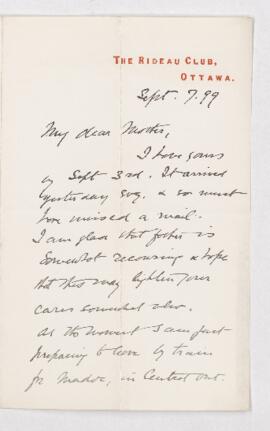 THE RIDEAU CLUB,
OTTAWA.
Sept. 7. 99
My dear Mother,
I have yours
of Sept 3rd. It arrived
yesterday evg. & so must
have missed a mail.
I am glad that father is
somewhat recovering & hope
that this may lighten your
cares somewhat also.
At the moment I am just
preparing to leave by train
for Madoc, in Central Ont.